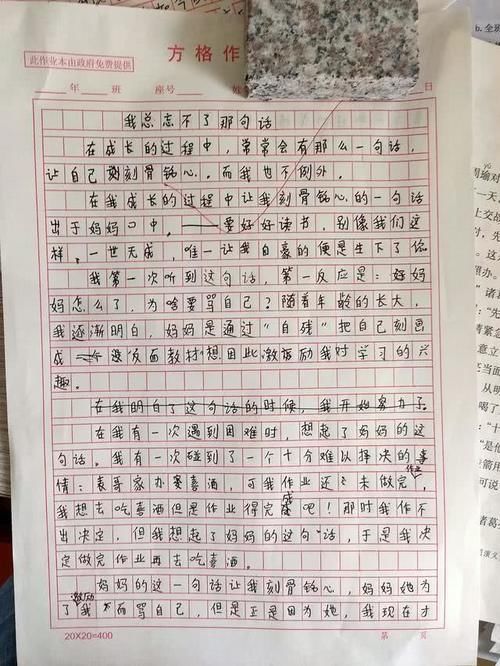 此作业本由政府免费提供
方格作
年 班 座号 日
b.全班
我总忘不了那句话
在成长的过程中，常常会有那么一句话，
让自己刻骨铭心。而我也不例外。
在我成长的过程中让我刻骨铭心的一句话
出于妈妈口中。——要好好读书，别像我们这
样，一世无成，唯一让我自豪的便是生下了你
我第一次听到这句话，第一反应是：好妈
妈怎么了，为啥要骂自己？随着年龄的长大，
我逐渐明白，妈妈是通过“自残”把自己刻画
成一个反面教材想因此激励我对学习的兴
趣。
在我明白了这句话的时候，我开始努力了。
在我有一次遇到困难时，想起了妈妈的这
句话。我有一次碰到了一个十分难以择决的事
情：表哥家办宴喜酒，可我作业还未做完，
我想去吃喜酒但是作业得完成吧！那时我作不
出决定，但我想起了妈妈的这句话，于是我决
定做完作业再去吃喜酒。
妈妈的这一句话让我刻骨铭心，妈妈她为
了激励我而骂自己，但是正是因为她，我现在才
20X20=400
第 页